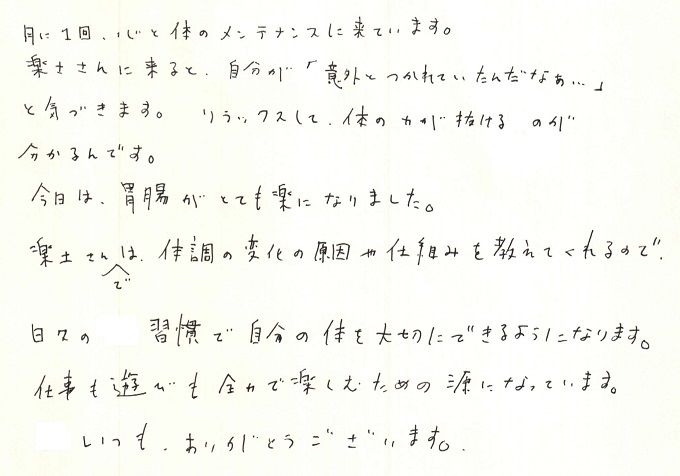 月に1回、心と体のメンテナンスに来ています。
楽士さんに来ると、自分が「意外とつかれていたんだなぁ…」
と気づきます。 リラックスして、体の力が抜けるのが
分かるんです。
今日は、胃腸がとても楽になりました。
楽士さんでは、体調の変化の原因や仕組みを教えてくれるので、
日々の 習慣で自分の体を大切にできるようになります。
仕事も遊びも全力で楽しむための源になっています。
いつも、ありがとうございます。